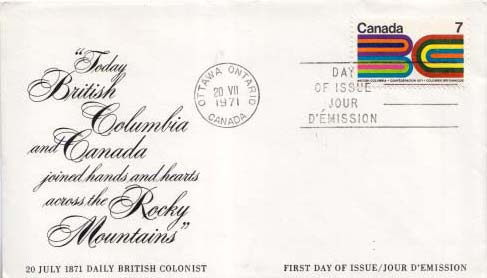 "Today
British
Columbia
and Canada
joined hands and hearts
across the Rocky
Mountains"
20 JULY 1871 DAILY BRITISH COLONIST
OTTAWA ONTARIO
20 VII
1971
CANADA
Canada 7
BRITISH COLUMBIA • CONFEDERATION 1871 • COLOMBIE-BRITANNIQUE
DAY
OF ISSUE
JOUR
D'ÉMISSION
FIRST DAY OF ISSUE/JOUR D'EMISSION